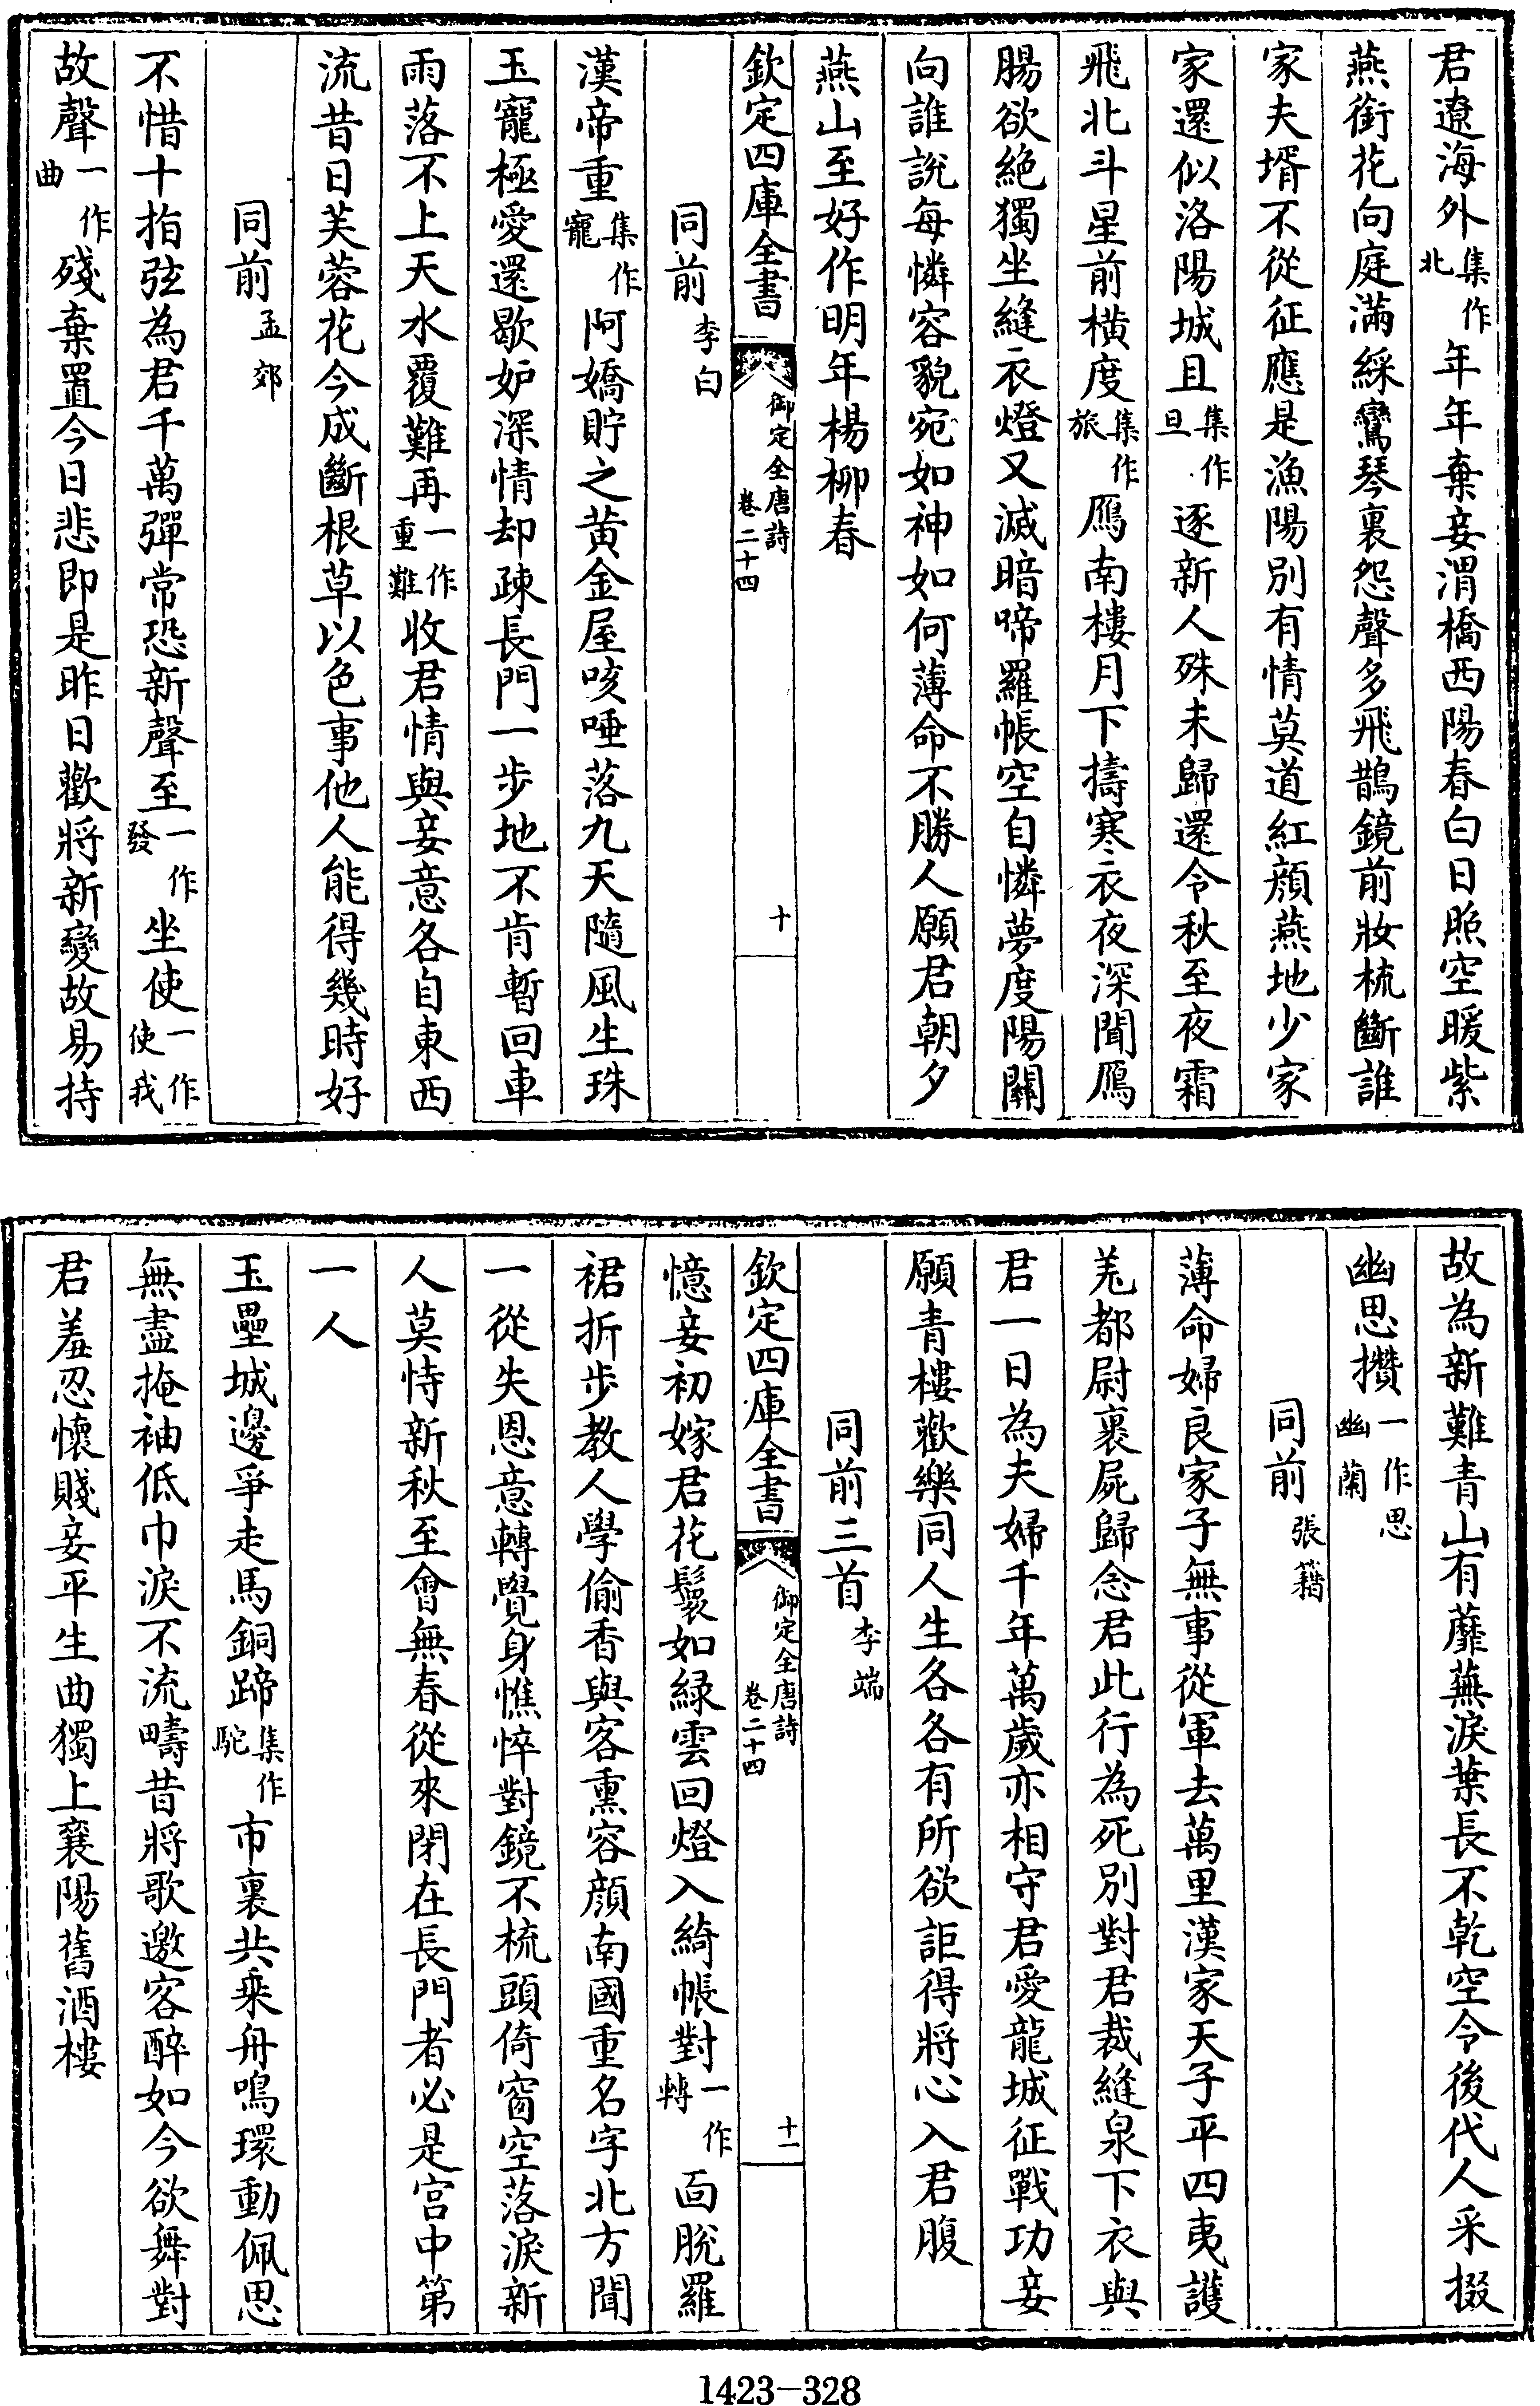 君遼海外集作北年年棄妾渭橋西陽春白日照空暖紫
燕銜花向庭滿綵鸞琴裏怨聲多飛鵲鏡前妝梳斷誰
家夫壻不從征應是漁陽別有情莫道紅顔燕地少家
家還似洛陽城且集作旦逐新人殊未歸還令秋至夜霜
飛北斗星前橫度集作旅鴈南樓月下擣寒衣夜深聞鴈
腸欲絶獨坐縫衣燈又滅暗啼羅帳空自憐夢度陽關
向誰說每憐容貌宛如神如何薄命不勝人願君朝夕
燕山至好作明年楊柳春
欽定四庫全書 御定全唐詩卷二十四 十
同前李白
漢帝重集作寵阿嬌貯之黄金屋咳唾落九天隨風生珠
玉寵極愛還歇妒深情却疎長門一步地不肯暫回車
雨落不上天水覆難再一作重難收君情與妾意各自東西
流昔日芙蓉花今成斷根草以色事他人能得幾時好
同前孟郊
不惜十指弦為君千萬彈常恐新聲至一作發坐使一作使我
故聲一作曲殘棄置今日悲即是昨日歡將新變故易持
故為新難青山有蘼蕪淚葉長不乾空令後代人采掇
幽思攢一作思幽蘭
同前張籍
薄命婦良家子無事從軍去萬里漢家天子平四夷護
羌都尉裹屍歸念君此行為死別對君裁縫泉下衣與
君一日為夫婦千年萬歲亦相守君愛龍城征戰功妾
願青樓歡樂同人生各各有所欲詎得將心入君腹
同前三首李端
欽定四庫全書 御定全唐詩卷二十四 十一
憶妾初嫁君花鬟如緑雲回燈入綺帳對一作轉面脫羅
裙折步教人學偷香與客熏容顔南國重名字北方聞
一從失恩意轉覺身憔悴對鏡不梳頭倚窗空落淚新
人莫恃新秋至會無春從來閉在長門者必是宫中第
一人
玉壘城邊爭走馬銅蹄集作駝市裏共乗舟鳴環動佩思
無盡掩袖低巾淚不流疇昔將歌邀客醉如今欲舞對
君羞忍懷賤妾平生曲獨上襄陽舊酒樓
1423-328